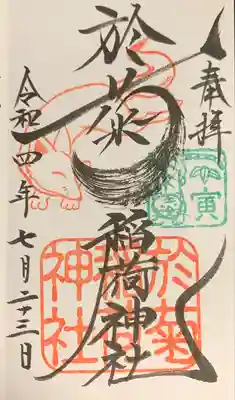 奉拝
於菊
稲荷神社
令和四年七月二十三日
壬寅
於菊
稲荷
神社